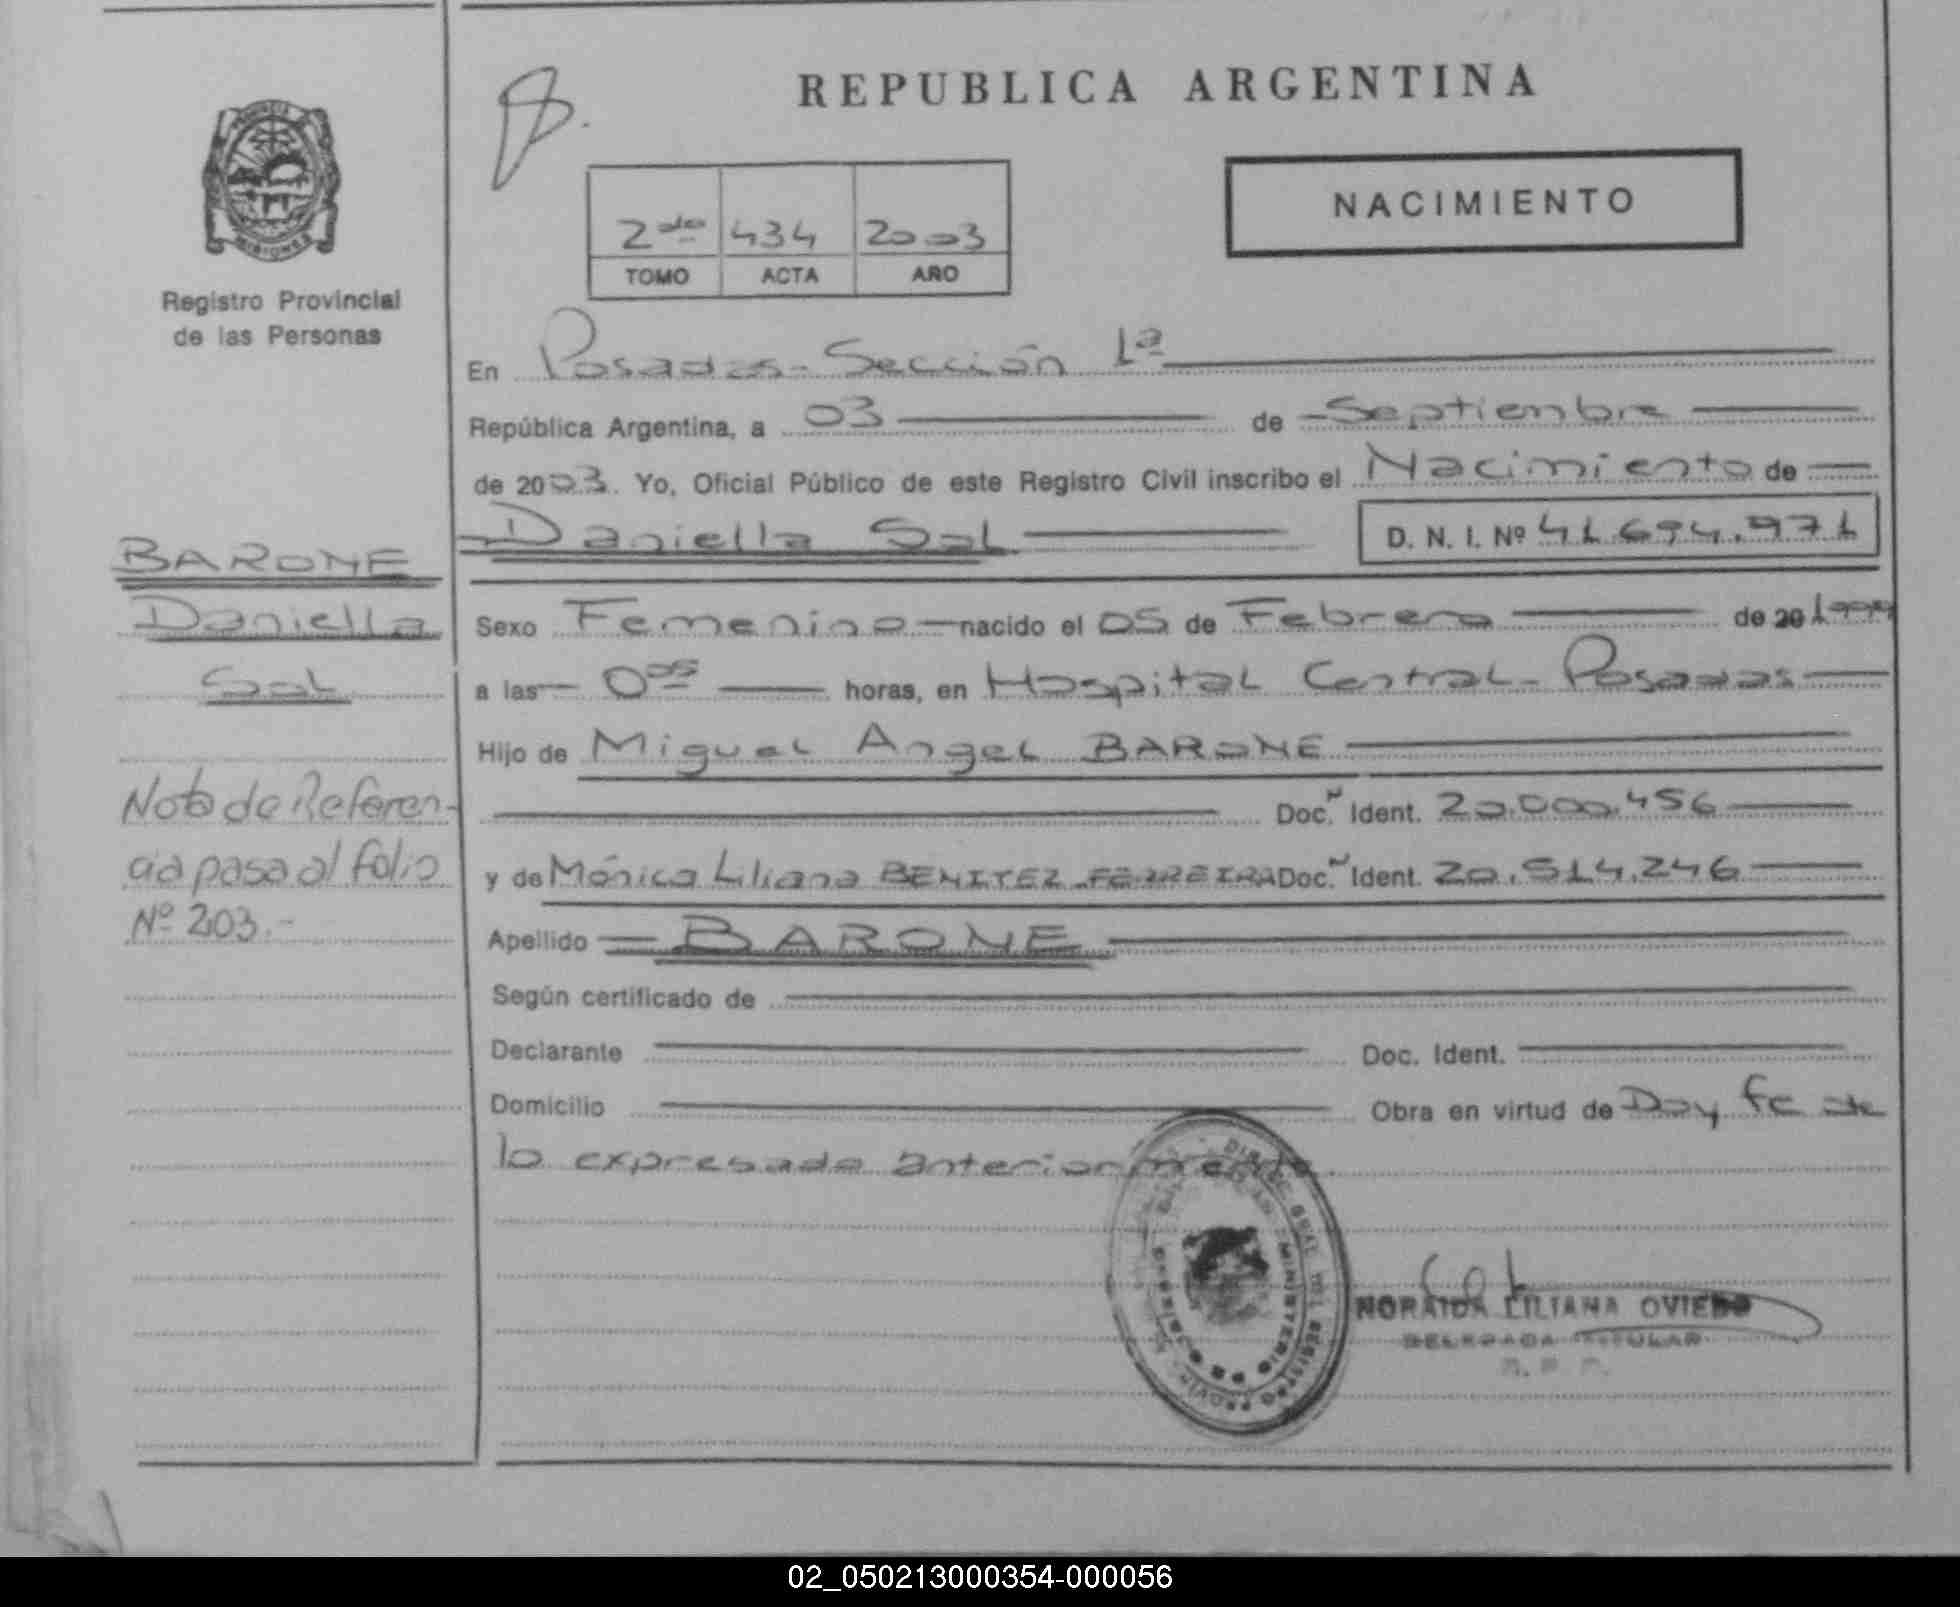 REPUBLICA ARGENTINA
NACIMIENTO
2do 434 2003
TOMO ACTA AÑO
PROVINCIA
MISIONES
Registro Provincial
de las Personas
En Posadas - Sección 1ª
República Argentina, a 03 de Septiembre
de 2003. Yo, Oficial Público de este Registro Civil inscribo el Nacimiento de
Daniella Sol D. N. I. Nº 41.694.971
Sexo Femenino nacido el 05 de Febrero de 20 1999
a las 0 05 horas, en Hospital Central - Posadas
Hijo de Miguel Angel BARONE
Doc. Ident. 20.000.456
y de Mónica Liliana BENITEZ FERREIRA Doc. Ident. 20.514.246
Apellido BARONE
Según certificado de
Declarante Doc. Ident.
Domicilio Obra en virtud de Doy fe de
lo expresado anteriormente.
BARONE
Daniella
Sol
Nota de Referen-
cia pasa al folio
Nº 203.-
MINISTERIO DE
NORAIDA LILIANA OVIEDO
DELEGADA TITULAR
R. P. P.
02_050213000354-000056